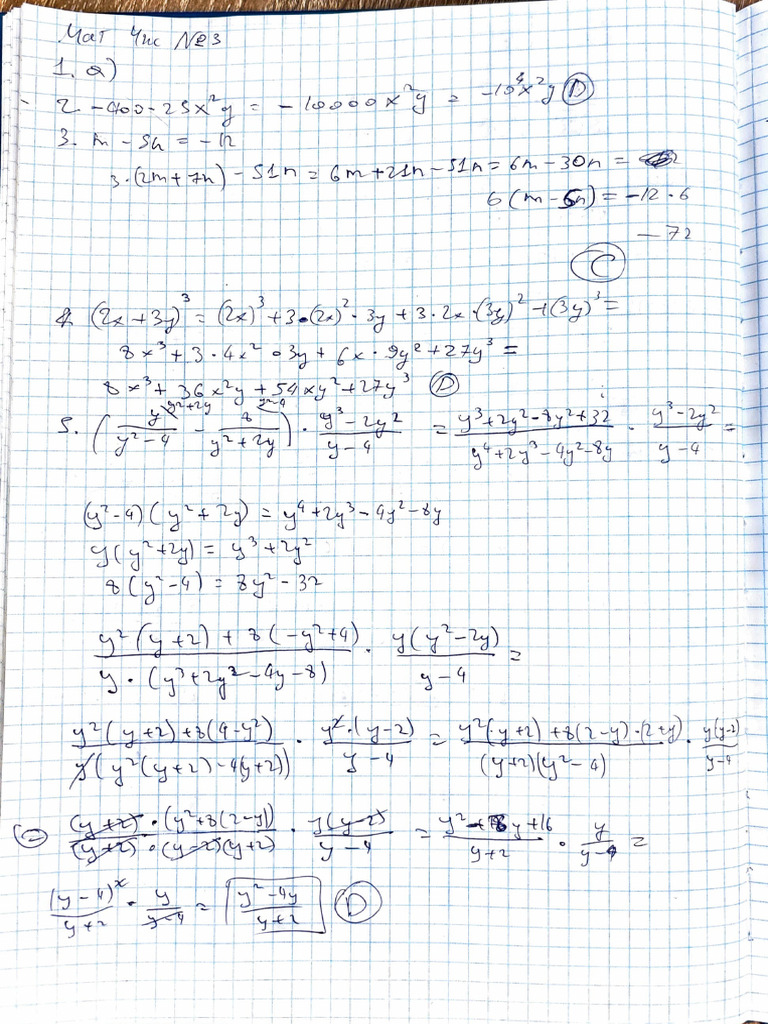 Мат Чис №3
1. a)
2. -400·25x²y = -10000x²y = -10⁴x²y D
3. m - 5n = -12
3·(2m+7n) - 51n = 6m+21n-51n = 6m-30n =
6(m-5n) = -12·6
-72
C
4. (2x+3y)³ = (2x)³+3·(2x)²·3y+3·2x·(3y)²+(3y)³ =
8x³+3·4x²·3y+6x·9y²+27y³ =
8x³+36x²y+54xy²+27y³ D
5. (y/(y²-4) - 8/(y²+2y)) · (y³-2y²)/(y-4) = (y³+2y²-8y²+32)/(y⁴+2y³-4y²-8y) · (y³-2y²)/(y-4) =
(y²-4)(y²+2y) = y⁴+2y³-4y²-8y
y(y²+2y) = y³+2y²
8(y²-4) = 8y²-32
(y²(y+2)+8(-y²+4))/(y·(y³+2y²-4y-8)) · y(y²-2y)/(y-4) =
(y²(y+2)+8(4-y²))/(y(y²(y+2)-4(y+2))) · y²·(y-2)/(y-4) = (y²(y+2)+8(2-y)·(2+y))/((y+2)(y²-4)) · y(y-2)/(y-4)
= ((y+2)·(y²+8(2-y)))/((y+2)·(y-2)(y+2)) · y(y-2)/(y-4) = (y²-8y+16)/(y+2) · y/(y-4) =
(y-4)²/(y+2) · y/(y-4) = (y²-4y)/(y+2) D